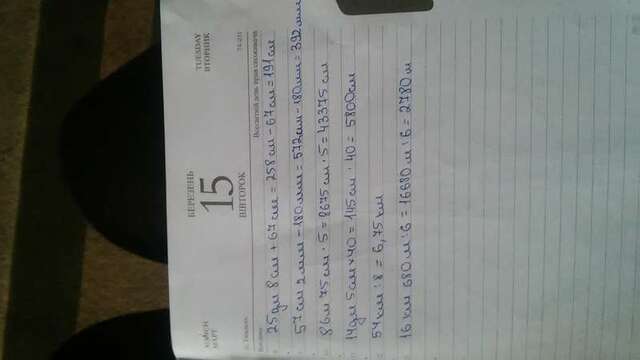 MARCH
МАРТ
БЕРЕЗЕНЬ
15
ВІВТОРОК
TUESDAY
ВТОРНИК
74-291
Всесвітній день прав споживача
25дм 8см + 67см = 258см - 67см = 191см
57см 2мм - 180мм = 572мм - 180мм = 392мм
86м 75см · 5 = 8675см · 5 = 43375см
14дм 5см × 40 = 145см · 40 = 5800см
54км : 8 = 6,75км
16 км 680 м : 6 = 16680 м : 6 = 2780 м